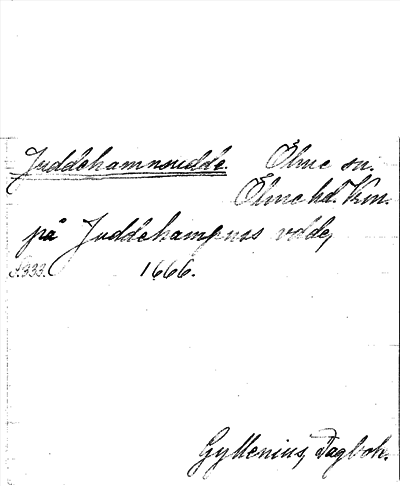 Juddehamnsudde. Ölme sn.
Ölme hd. Vrm.
på Juddehampnes vdde,
s. 333. 1666.
Gyllenius, Dagbok.